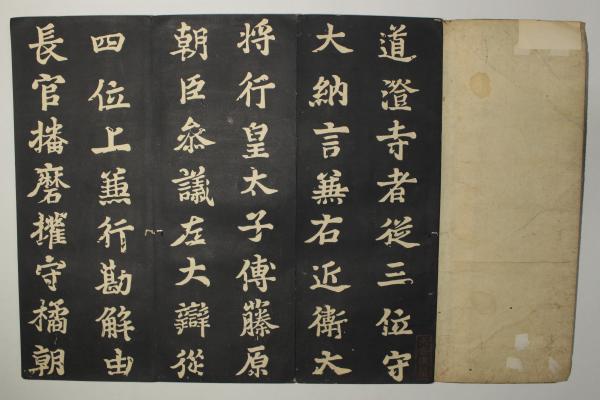 道澄寺者従三位守
大納言兼右近衛大
将行皇太子傅藤原
朝臣叅議左大辯従
四位上兼行勘解由
長官播磨權守橘朝